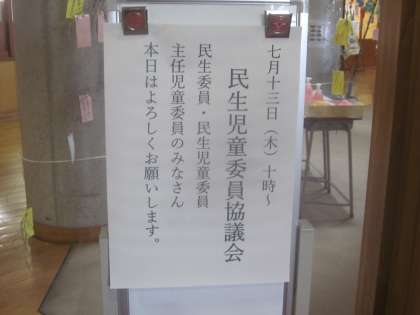 七月十三日（木）十時～
民生児童委員協議会
民生委員・民生児童委員
主任児童委員のみなさん
本日はよろしくお願いします。